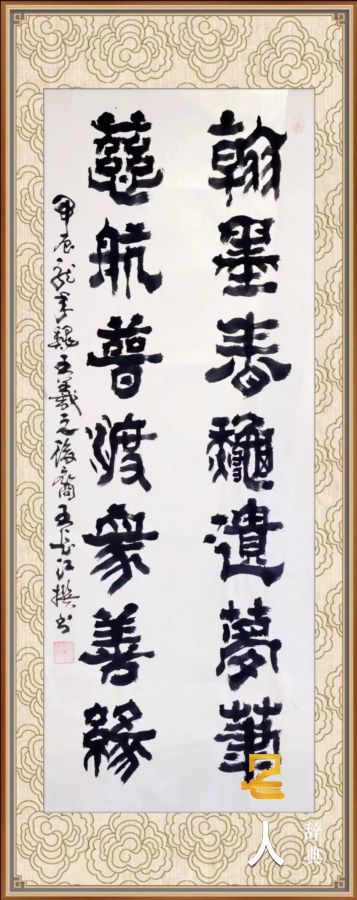 翰墨春龝遺夢筆
慈航普渡衆善緣
甲辰龍年王羲之後裔王長江撰书
人
辞典